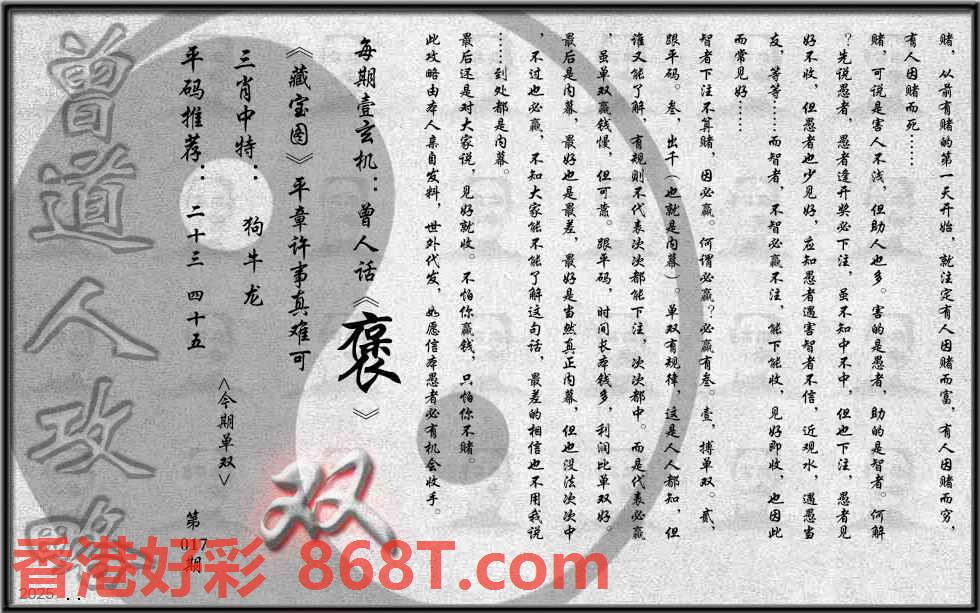 赌，从前有赌的第一天开始，就注定有人因赌而富，有人因赌而穷，
有人因赌而死……
赌，可说是害人不浅，但助人也多。害的是愚者，助的是智者。何解
？先说愚者，愚者逢开奖必下注，虽不知中不中，但也下注，愚者见
好不收，但愚者也少见好，应知愚者遇害智者不信，近观水，遇愚当
友，等等……而智者，不智必赢不注，能下能收，见好即收，也因此
而常见好……
智者下注不算赌，因必赢。何谓必赢？必赢有叁。壹，搏单双。贰，
跟平码。叁，出千（也就是内幕）。单双有规律，这是人人都知，但
谁又能了解，有规则不代表次次都能下注，次次都中。而是代表必赢
，虽单双赢钱慢，但可靠。跟平码，时间长本钱多，利润比单双好。
最后是内幕，最好也是最差，最好是当然真正内幕，但也没法次次中
，不过也必赢，不知大家能不能了解这句话，最差的相信也不用我说
……到处都是内幕。
最后还是对大家说，见好就收。不怕你赢钱，只怕你不赌。
此攻略由本人亲自发料，世外代发，如愿信本愚者必有机会收手。
每期壹玄机：曾人话《褒》
《藏宝图》平章许事真难可
三肖中特：狗牛龙
平码推荐：二十三 四十五
<今期单双>
双
第
017
期
曾道人攻略
香港好彩 868T.com
2025